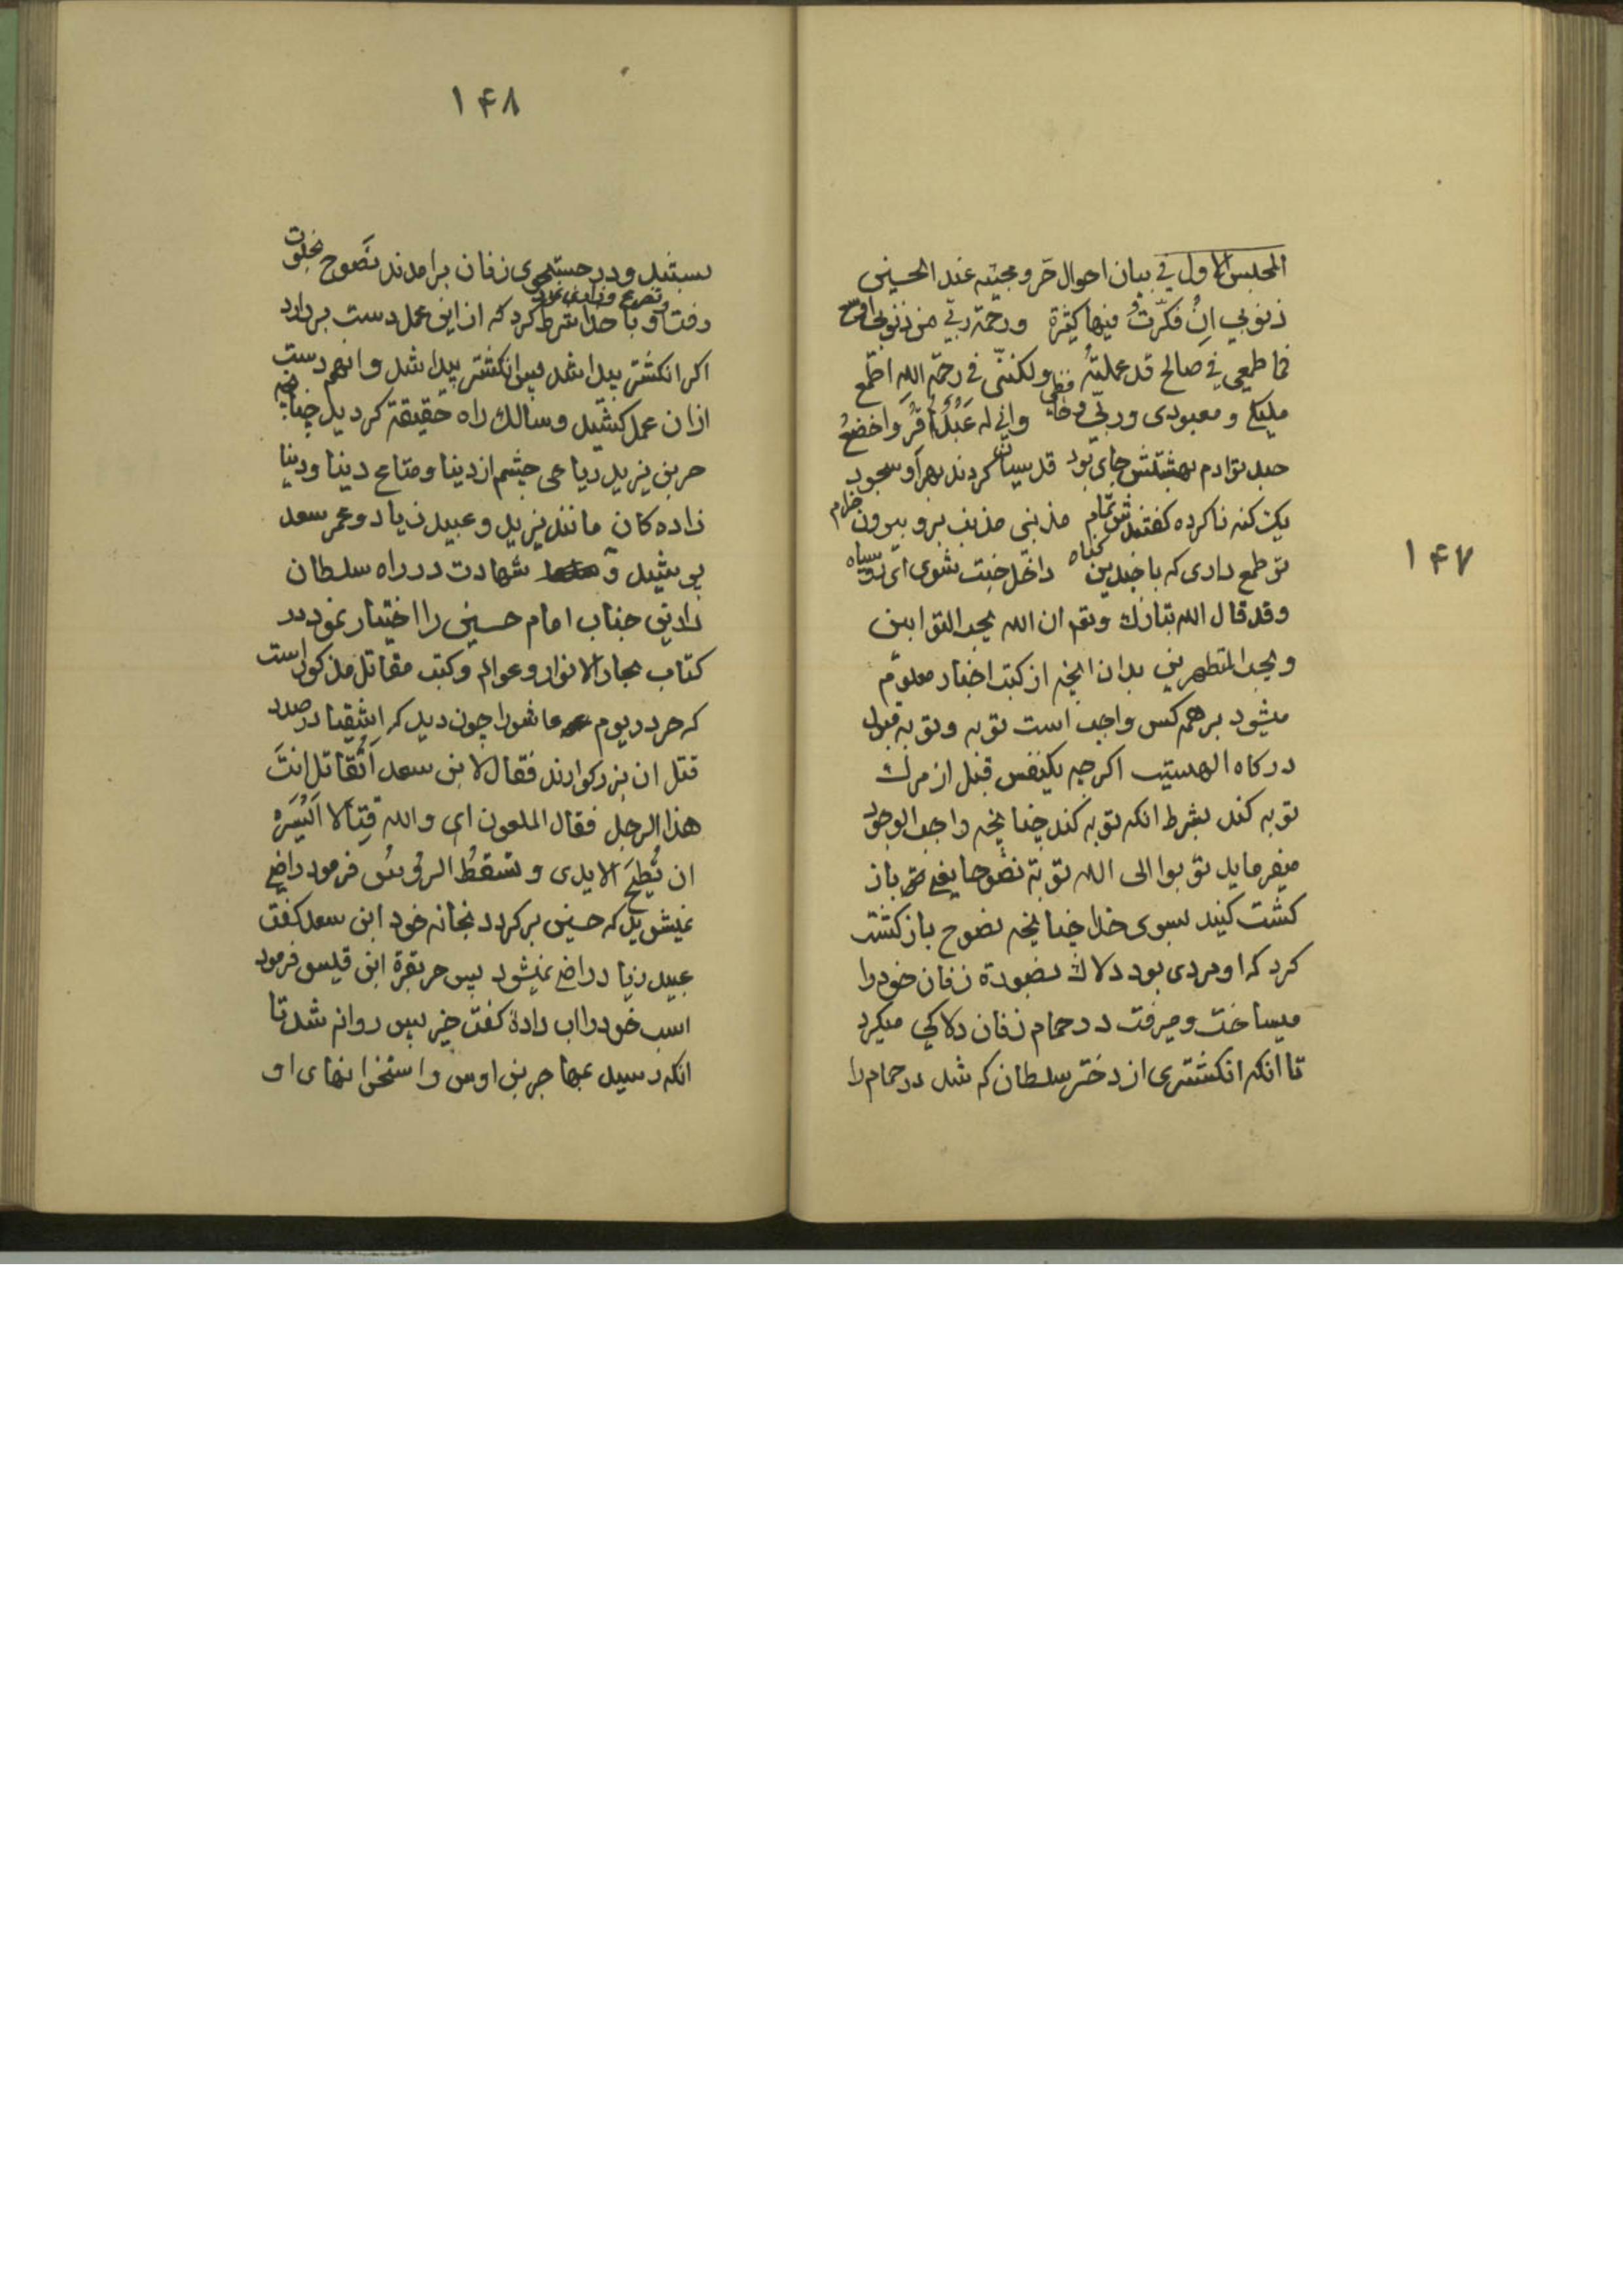 ۱۴۷
المجلس الاول في بيان احوال حر و مجيئه عند الحسين
ذنوبي ان فكرت فيها كثيرة ورحمة ربي من ذنوبي اوسع
فما طمعي في صالح قد عملته ولكنني في رحمة الله اطمع
مليكي و معبودي وربي و واني له عبد اقر واخضع
جد تو ادم بهشتش جاي بود قدسيان كردند بهر او سجود
يك كنه ناكرده گفتندش تمام مذنبي مذنب برو بيرون خرام
تو طمع داري كه با چندين گناه داخل جنت شوي اي رو سياه
وقد قال الله تبارك وتعم ان الله يحب التوابين
ويحب المتطهرين بدان انچه از كتب اخبار معلوم
ميشود بر همه كس واجب است توبه و توبه قبول
درگاه الهيست اگرچه يكنفس قبل از مرگ
توبه كند بشرط انكه توبه كند چنانچه واجب الوجود
ميفرمايد توبوا الى الله توبة نصوحا يعني باز
گشت كنيد بسوي خدا چنانچه نصوح بازگشت
كرد كه او مردي بود دلاك بصورة زنان خود را
ميساخت و ميرفت در حمام زنان دلاكي ميكرد
تا انكه انگشتري از دختر سلطان گم شد در حمام را
۱۴۸
بستند و در جستجوي زنان برامدند نصوح بخلوت
رفت و تضرع و زاري و با خدا شرط كرد كه از اين عمل دست بردارد
اگر انگشتر پيدا شد پس انگشتر پيدا شد و انهم دست
از ان عمل كشيد و سالك راه حقيقة گرديد چنانچه
حر بن يزيد رياحي چشم از دنيا و متاع دنيا و دنيا
زاده كان مانند يزيد و عبيد زياد و عمر سعد
پوشيد و شهادت در راه سلطان
دارين جناب امام حسين را اختيار نمود در
كتاب بحار الانوار و عوالم و كتب مقاتل مذكور است
كه حر در يوم عاشورا چون ديد كه اشقيا در صدد
قتل ان بزرگوارند فقال لابن سعد اتقاتل انت
هذا الرجل فقال الملعون اي والله قتالا ايسره
ان تطيح الايدي و تسقط الرؤس فرمود راضي
نميشويد كه حسين برگردد بخانه خود ابن سعد گفت
عبيد زياد راضي نميشود پس حر بقرة ابن قيس فرمود
اسب خود را اب داده گفت خير پس روانه شد تا
انكه رسيد بمهاجر بن اوس و استخوانهاي او